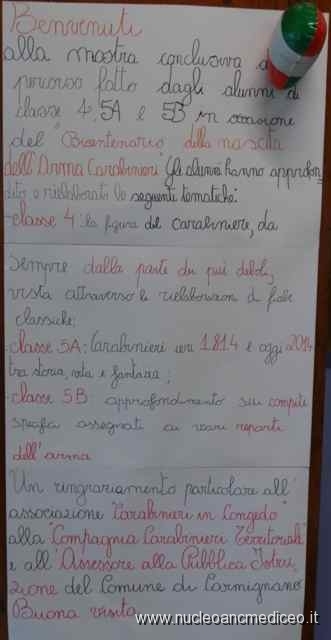 Benvenuti
alla mostra conclusiva d
percorso fatto dagli alunni di
classe 4, 5A e 5B in occasione
del "Bicentenario della nascita
dell'Arma Carabinieri" Gli alunni hanno approfon
dito e rielaborato le seguenti tematiche:
-classe 4: la figura del carabiniere, da
sempre dalla parte dei più deboli,
vista attraverso le rielaborazioni di fiabe
classiche;
-classe 5A: Carabinieri ieri 1814 e oggi 2014
tra storia, vita e fantasia;
-classe 5B: approfondimento sui compiti
specifici assegnati ai vari reparti
dell'arma
Un ringraziamento particolare all'
associazione "Carabinieri in Congedo"
alla "Compagnia Carabinieri Territoriale"
e all'"Assessore alla Pubblica Istru
zione del Comune di Carmignano
Buona visita
www.nucleoancmediceo.it